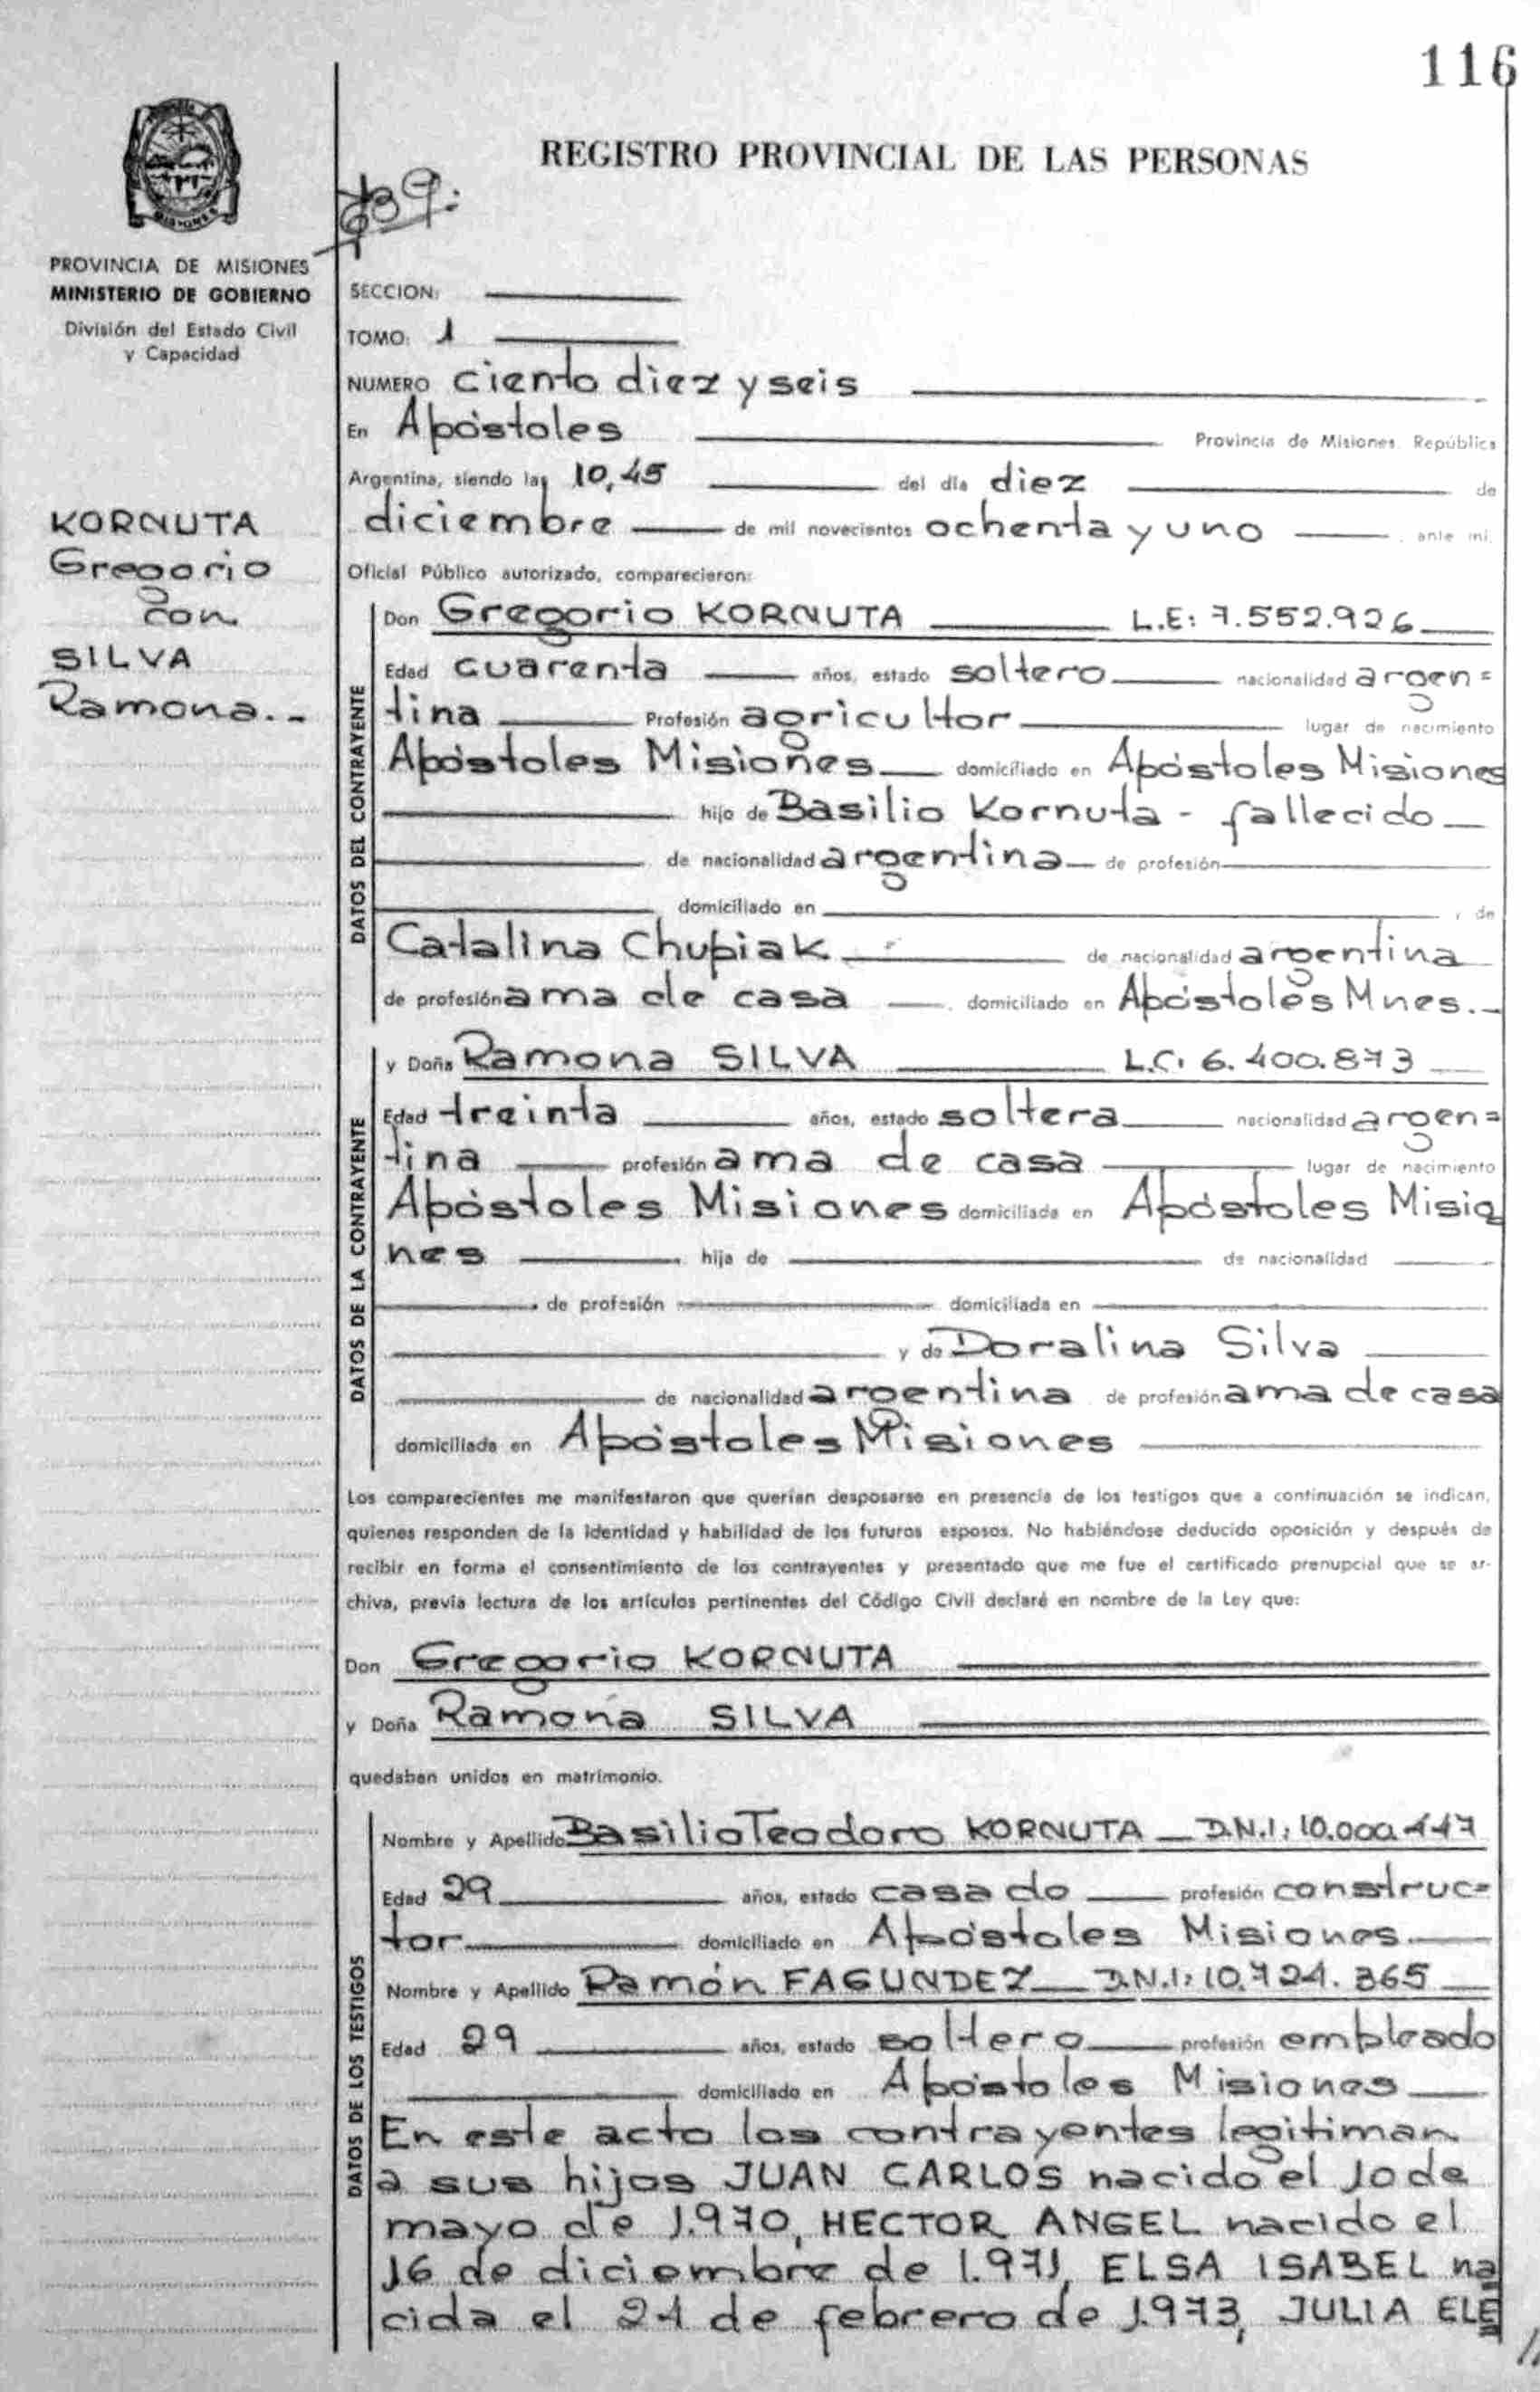 116
REGISTRO PROVINCIAL DE LAS PERSONAS
MISIONES
PROVINCIA DE MISIONES
MINISTERIO DE GOBIERNO
División del Estado Civil
y Capacidad
KORNUTA
Gregorio
con
SILVA
Ramona.-
SECCION:
TOMO: 1
NUMERO ciento diez y seis
En Apóstoles Provincia de Misiones República
Argentina, siendo las 10,45 del día diez de
diciembre de mil novecientos ochenta y uno , ante mí,
Oficial Público autorizado, comparecieron:
DATOS DEL CONTRAYENTE
Don Gregorio KORNUTA L.E: 7.552.926
Edad cuarenta años, estado soltero nacionalidad argen=
tina Profesión agricultor lugar de nacimiento
Apóstoles Misiones domiciliado en Apóstoles Misiones
hijo de Basilio Kornuta - fallecido
de nacionalidad argentina de profesión
domiciliado en , de
Catalina Chupiak de nacionalidad argentina
de profesión ama de casa domiciliado en Apóstoles Mnes.-
DATOS DE LA CONTRAYENTE
y Doña Ramona SILVA L.C: 6.400.873
Edad treinta años, estado soltera nacionalidad argen=
tina profesión ama de casa lugar de nacimiento
Apóstoles Misiones domiciliada en Apóstoles Misio
nes hija de de nacionalidad
de profesión domiciliada en
y de Doralina Silva
de nacionalidad argentina de profesión ama de casa
domiciliada en Apóstoles Misiones
Los comparecientes me manifestaron que querían desposarse en presencia de los testigos que a continuación se indican,
quienes responden de la identidad y habilidad de los futuros esposos. No habiéndose deducido oposición y después de
recibir en forma el consentimiento de los contrayentes y presentado que me fue el certificado prenupcial que se ar-
chiva, previa lectura de los artículos pertinentes del Código Civil declaré en nombre de la Ley que:
Don Gregorio KORNUTA
y Doña Ramona SILVA
quedaban unidos en matrimonio.
DATOS DE LOS TESTIGOS
Nombre y Apellido Basilio Teodoro KORNUTA D.N.I: 10.000.447
Edad 29 años, estado casado profesión construc=
tor domiciliado en Apóstoles Misiones
Nombre y Apellido Ramón FAGUNDEZ D.N.I: 10.724.365
Edad 29 años, estado soltero profesión empleado
domiciliado en Apóstoles Misiones
En este acto los contrayentes legitiman
a sus hijos JUAN CARLOS nacido el 10 de
mayo de 1.970, HECTOR ANGEL nacido el
16 de diciembre de 1.971, ELSA ISABEL na
cida el 24 de febrero de 1.973, JULIA ELE
//